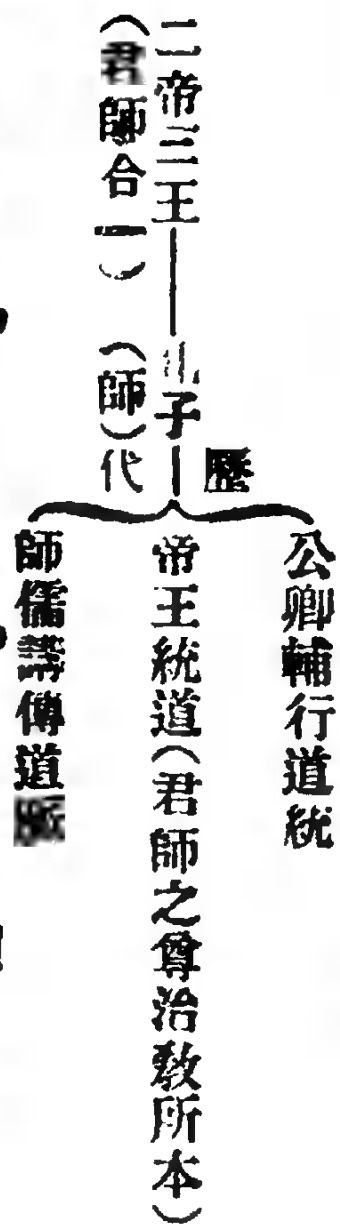 二帝三王——子
（君師合一）（師）
歷
代
公卿輔行道統
帝王統道（君師之尊治教所本）
師儒講傳道